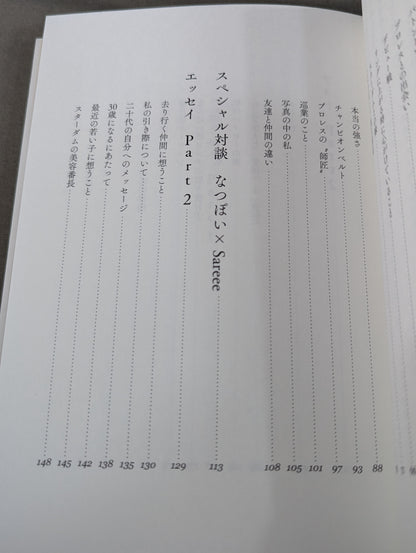 本当の強さ 88
チャンピオンベルト 93
プロレスの“師匠” 97
巡業のこと 101
写真の中の私 105
友達と仲間の違い 108
スペシャル対談 なつぽい×Sareee 113
エッセイ Part 2 129
去り行く仲間に想うこと 130
私の引き際について 135
二十代の自分へのメッセージ 138
30歳になるにあたって 142
最近の若い子に想うこと 145
スターダムの美容番長 148